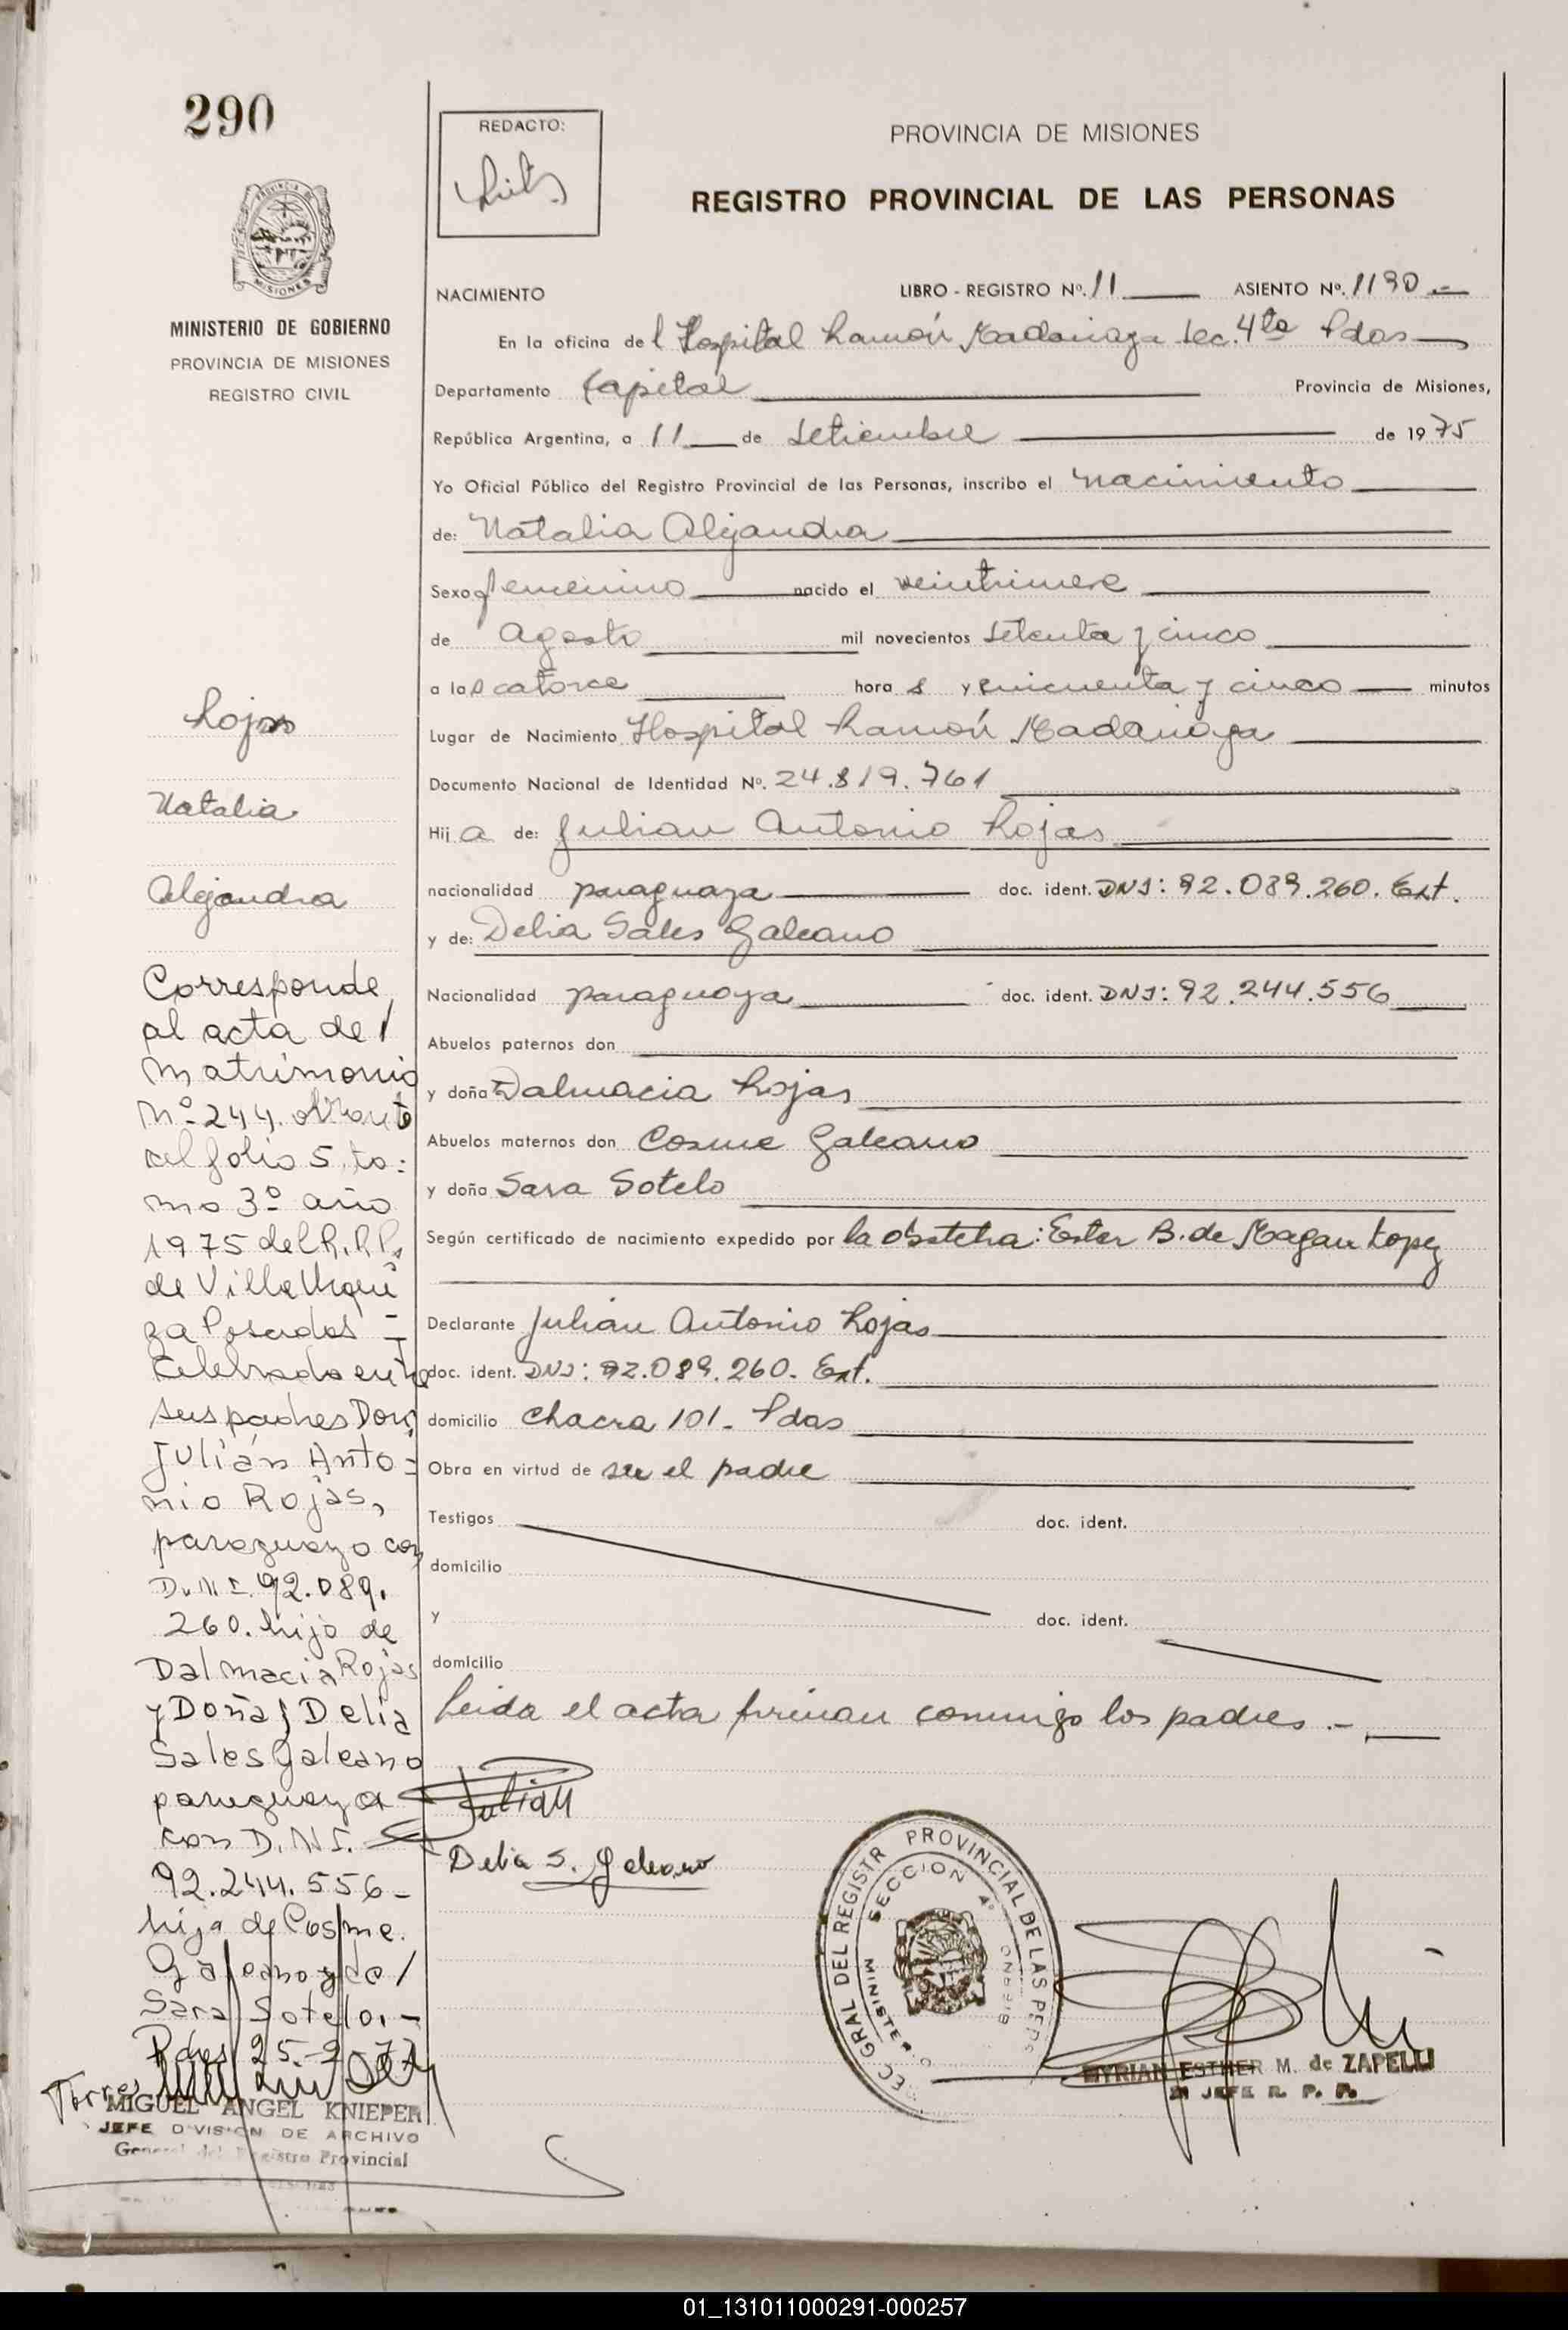 290
MINISTERIO DE GOBIERNO
PROVINCIA DE MISIONES
REGISTRO CIVIL
Rojas
Natalia
Alejandra
Corresponde
al acta de
matrimonio
Nº 244. obrante
al folio 5 to=
mo 3º año
1975 del R.P.P.
de Villa Urqui
za Posadas =
Celebrado entre
sus padres Don
Julián Anto=
nio Rojas,
paraguayo con
D.N.I. 92.089.
260. hijo de
Dalmacia Rojas
y Doña Delia
Sales Galeano
paraguaya
con D.N.I.
92.244.556-
hija de Cosme
Galeano y de
Sara Sotelo.-
Pdas 25-2-77
Torres
MIGUEL ANGEL KNIEPER
JEFE DIVISION DE ARCHIVO
General del Registro Provincial
REDACTO:
PROVINCIA DE MISIONES
REGISTRO PROVINCIAL DE LAS PERSONAS
NACIMIENTO LIBRO - REGISTRO Nº. 11 ASIENTO Nº. 1190.-
En la oficina del Hospital Ramón Madariaga Sec. 4ta Pdas
Departamento Capital Provincia de Misiones,
República Argentina, a 11 de Setiembre de 1975
Yo Oficial Público del Registro Provincial de las Personas, inscribo el nacimiento
de: Natalia Alejandra
Sexo femenino nacido el
de Agosto mil novecientos setenta y cinco
a las catorce hora s y cincuenta y cinco minutos
Lugar de Nacimiento Hospital Ramón Madariaga
Documento Nacional de Identidad Nº. 24.819.761
Hij a de: Julian Antonio Rojas
nacionalidad paraguaya doc. ident. DNI: 92.089.260. Ext.
y de: Delia Sales Galeano
Nacionalidad paraguaya doc. ident. DNI: 92.244.556
Abuelos paternos don
y doña Dalmacia Rojas
Abuelos maternos don Cosme Galeano
y doña Sara Sotelo
Según certificado de nacimiento expedido por la obstetra: Ester B. de Magan Lopez
Declarante Julian Antonio Rojas
doc. ident. DNI: 92.089.260. Ext.
domicilio Chacra 101- Pdas
Obra en virtud de ser el padre
Testigos doc. ident.
domicilio
y doc. ident.
domicilio
Leida el acta firman conmigo los padres.-
Julian
Delia S. Galeano
SECCION 4º
MYRIAN ESTHER M. de ZAPELLI
JEFE R. P. P.
01_131011000291-000257